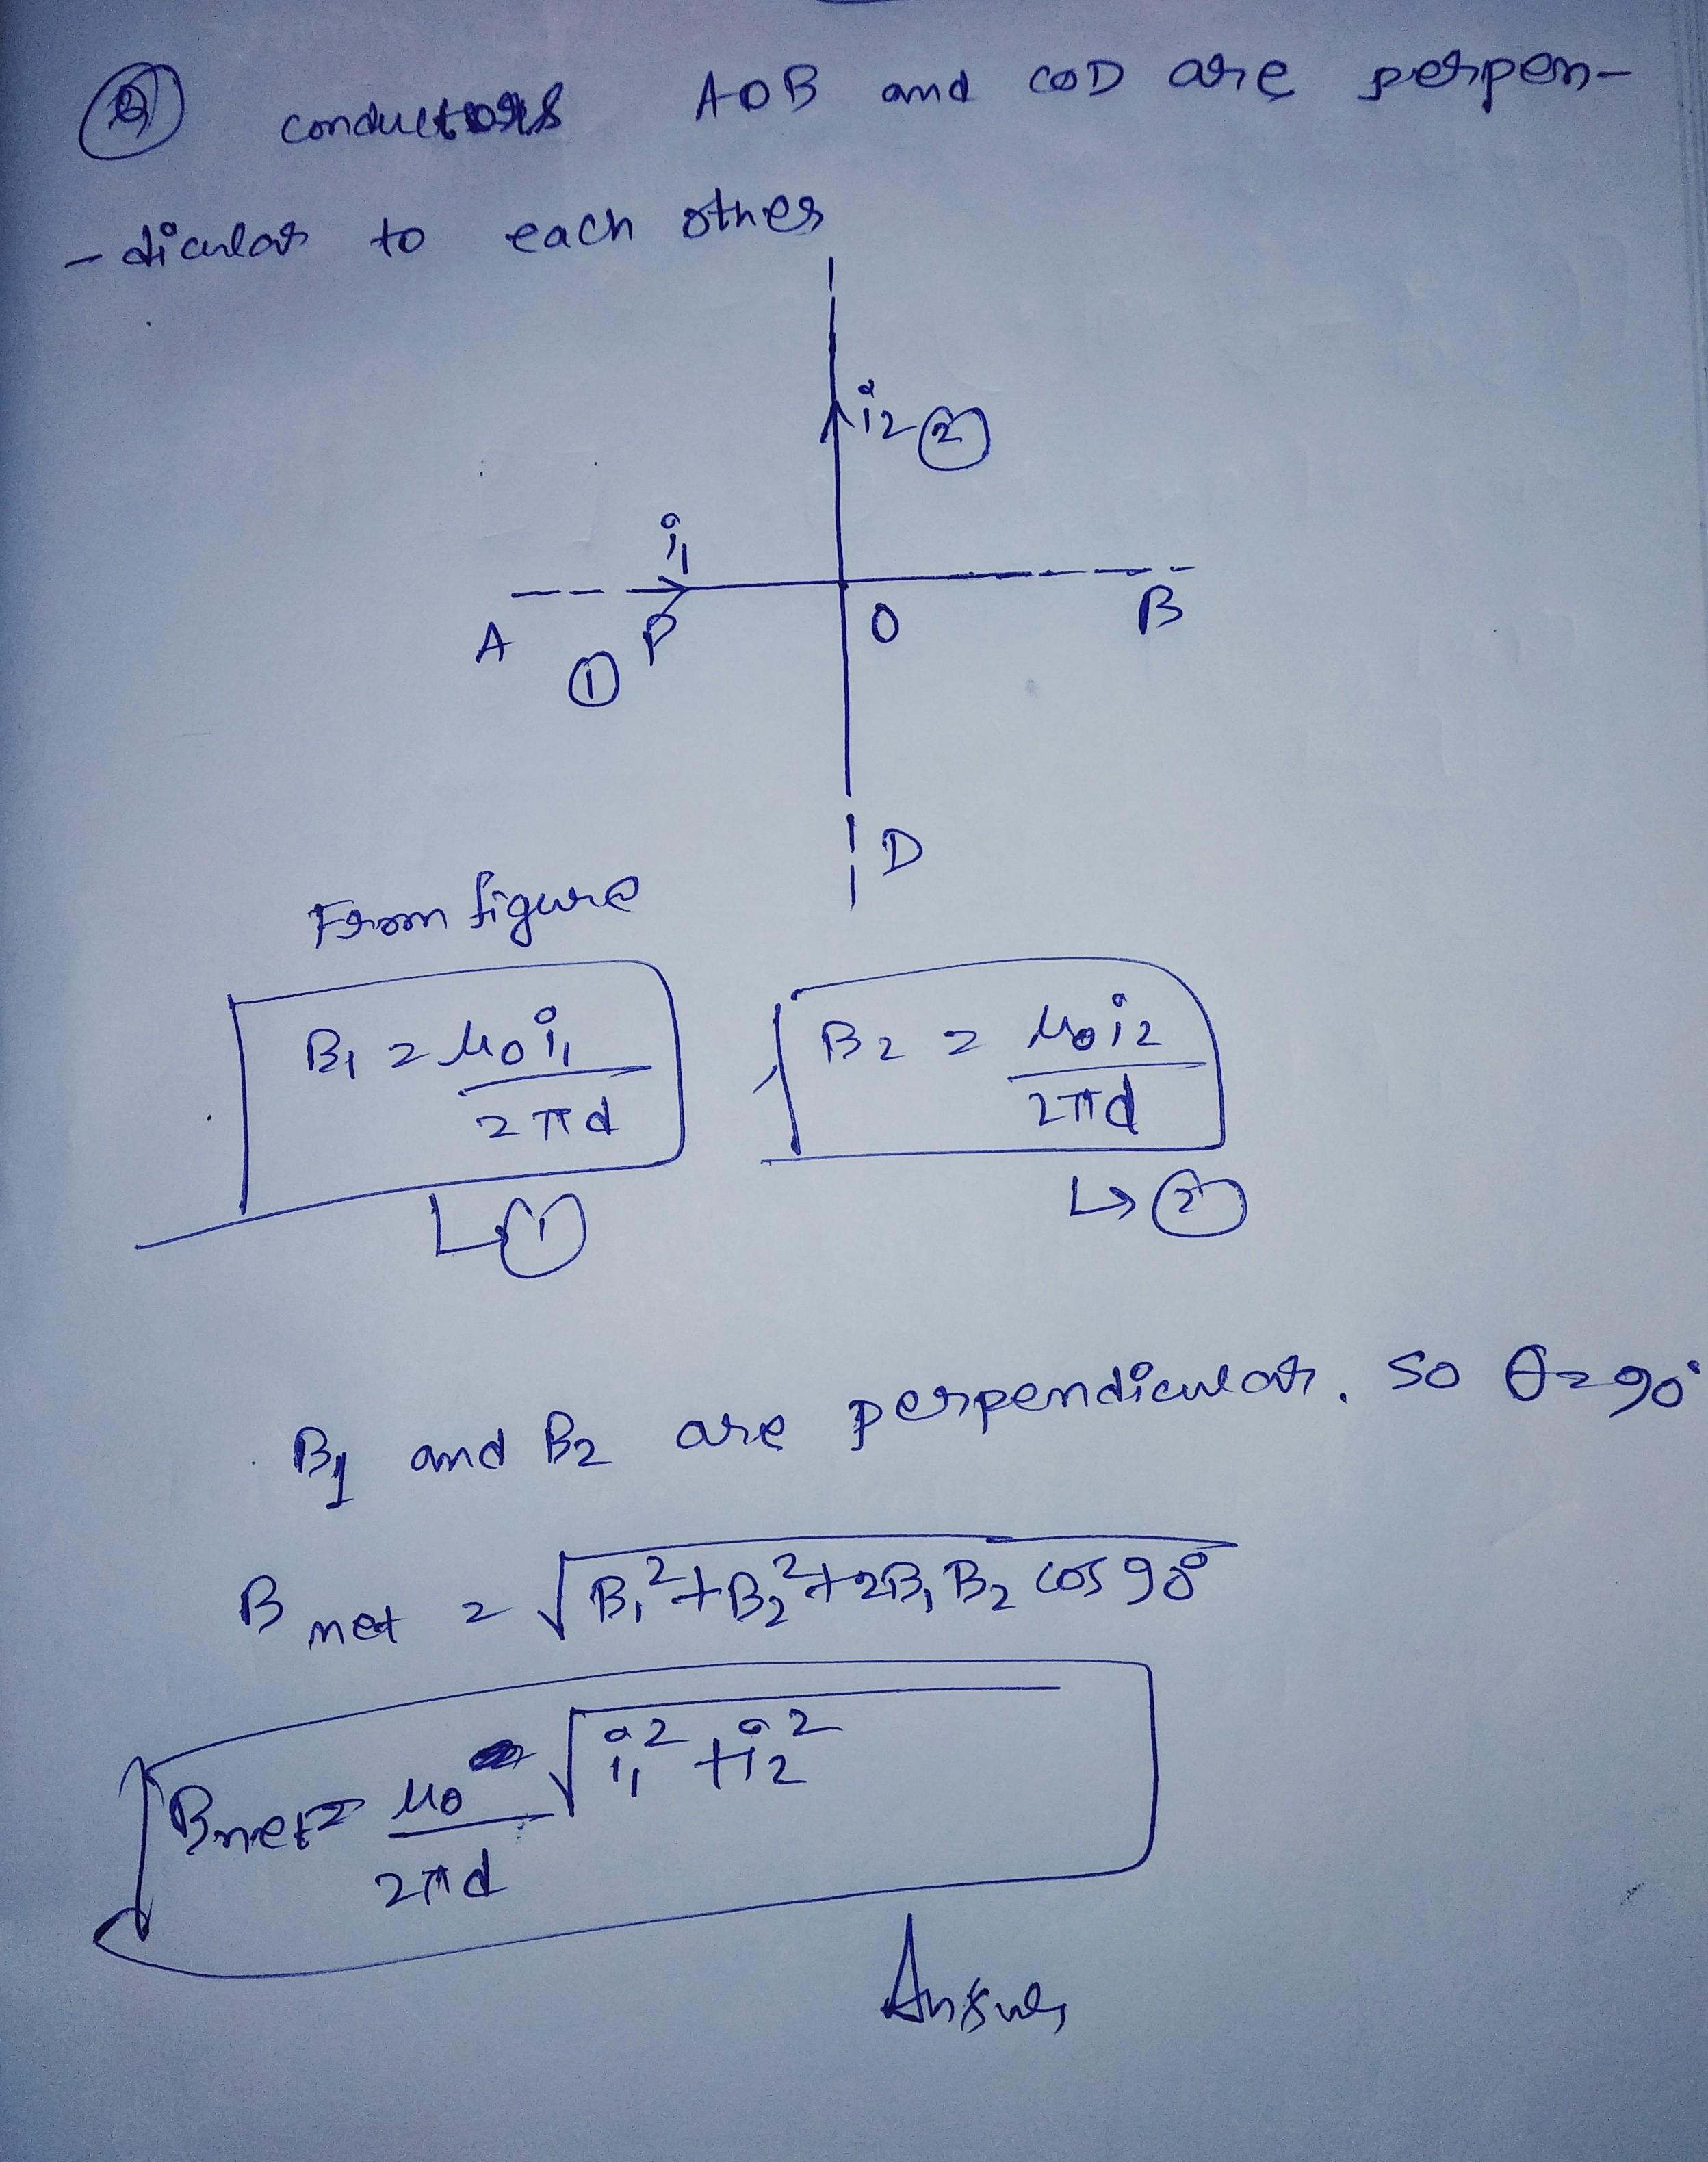 Q conductors AOB and COD are perpen-
-dicular to each other
i₂ ②
i₁
A P O B
①
D
From figure
B₁ = μ₀i₁ / 2πd
B₂ = μ₀i₂ / 2πd
↳ ①
↳ ②
B₁ and B₂ are perpendicular. so θ=90°
B net = √(B₁²+B₂²+2B₁B₂ cos 90°)
Bnet = μ₀ / 2πd √(i₁²+i₂²)
Answer